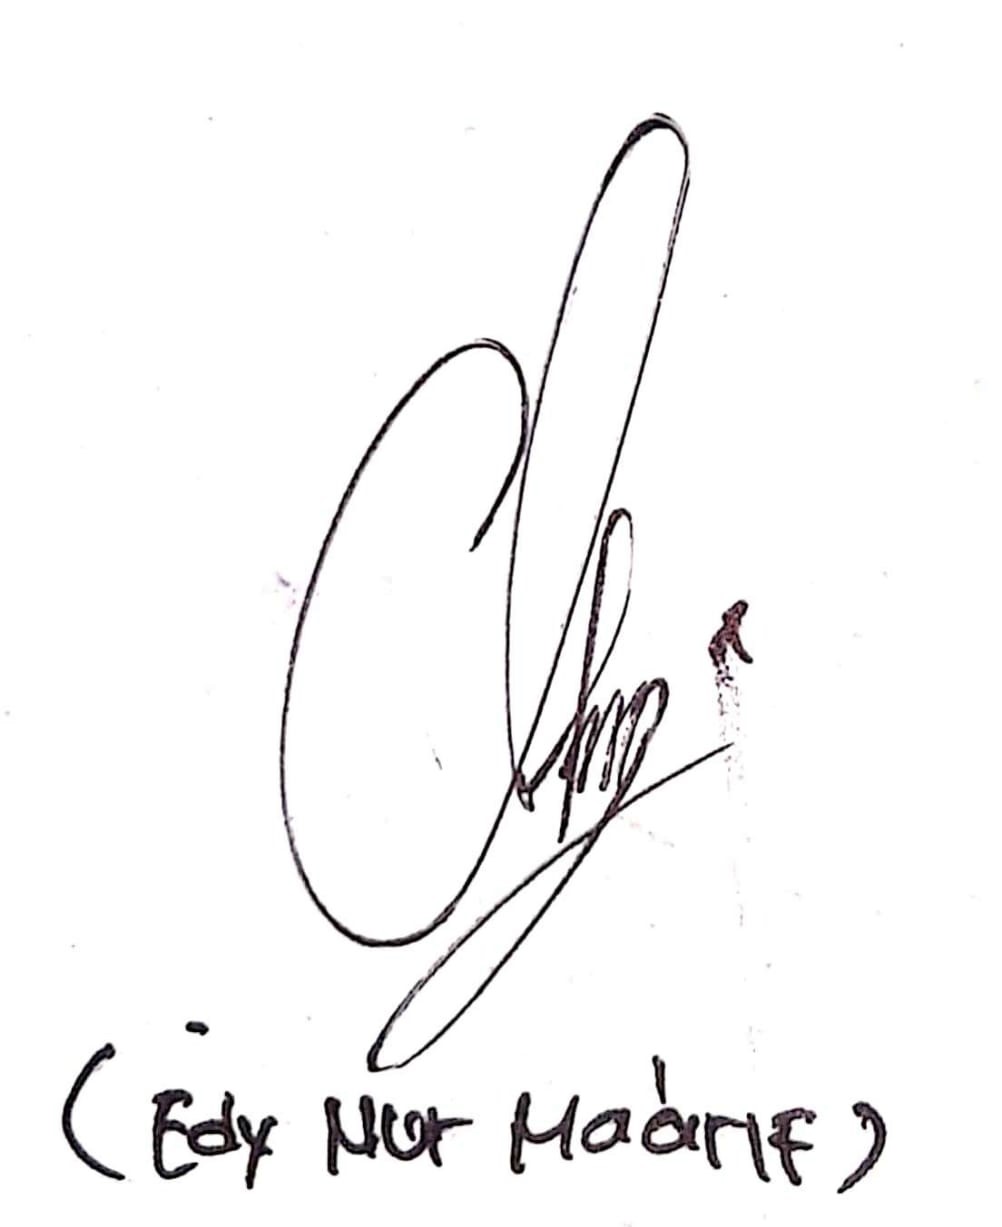 (Edy Nur Ma'arif)